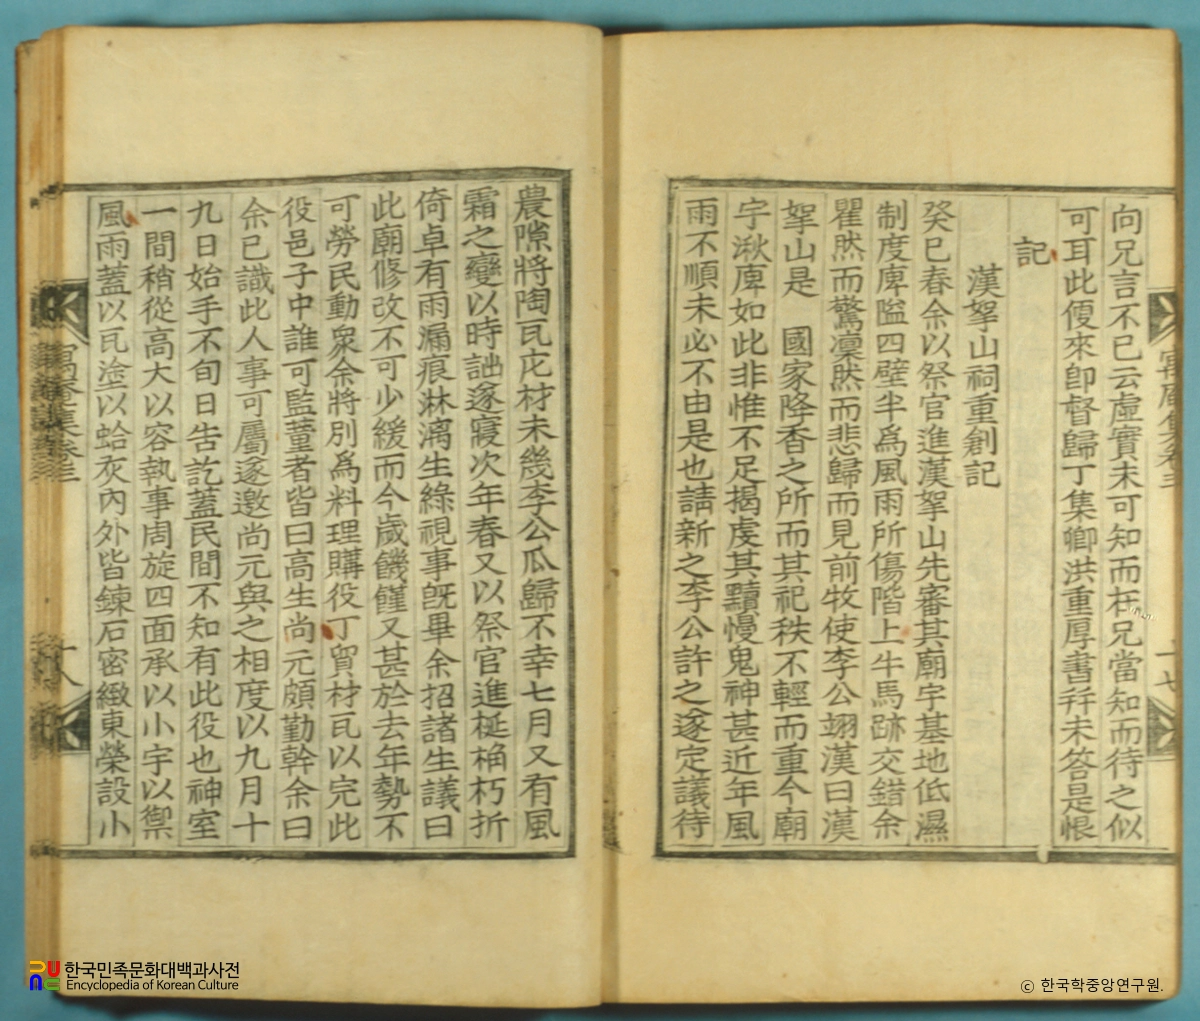 向兄言不已云虛實未可知而在兄當知而待之似
可耳此便來卽督歸丁集卿洪重厚書幷未答是悵
記
漢拏山祠重創記
癸巳春余以祭官進漢拏山先審其廟宇基地低濕
制度庳隘四壁半爲風雨所傷階上牛馬跡交錯余
瞿然而驚凜然而悲歸而見前牧使李公翊漢曰漢
拏山是 國家降香之所而其祀秩不輕而重今廟
宇湫庳如此非惟不足揭虔其黷慢鬼神甚近年風
雨不順未必不由是也請新之李公許之遂定議待
十七
農隙將陶瓦庀材未幾李公瓜歸不幸七月又有風
霜之變以時詘遂寢次年春又以祭官進梃桷朽折
倚卓有雨漏痕淋漓生綠視事旣畢余招諸生議曰
此廟修改不可少緩而今歲饑饉又甚於去年勢不
可勞民動衆余將別爲料理購役丁貿材瓦以完此
役邑子中誰可監蕫者皆曰高生尙元頗勤幹余曰
余已識此人事可屬遂邀尙元與之相度以九月十
九日始手不旬日告訖蓋民間不知有此役也神室
一間稍從高大以容執事周旋四面承以小宇以禦
風雨蓋以瓦塗以蛤灰內外皆鍊石密緻東榮設小
集卷三
十八
한국민족문화대백과사전
Encyclopedia of Korean Culture
ⓒ 한국학중앙연구원.